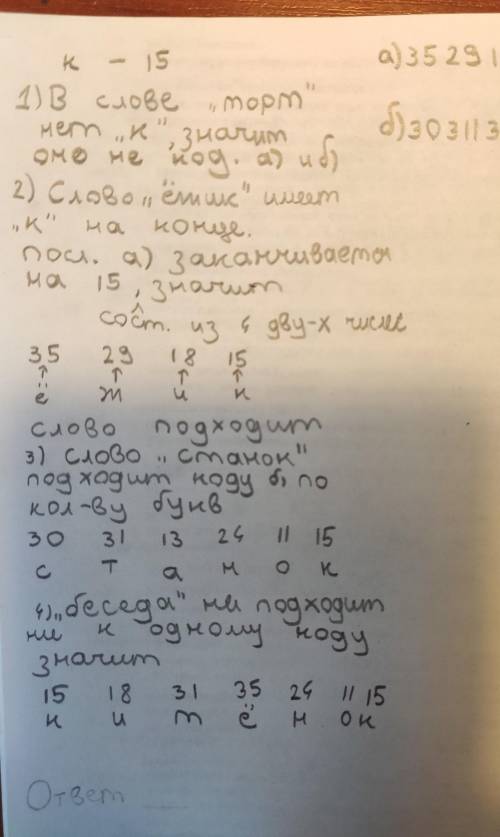 к – 15 а) 35 29 1
1) В слове „торт"
нет „к", значит б) 303113
оно не код. а) и б)
2) Слово „ёжик" имеет
„к" на конце.
посл. а) заканчивается
на 15, значит
сост. из 4 дву-х чисел
35 29 18 15
↑ ↑ ↑ ↑
ё ж и к
слово подходит
3) слово „станок"
подходит коду б) по
кол-ву букв
30 31 13 24 11 15
с т а н о к
4) „беседа" ни подходит
ни к одному коду
значит
15 18 31 35 24 11 15
к и т ё н ок
Ответ